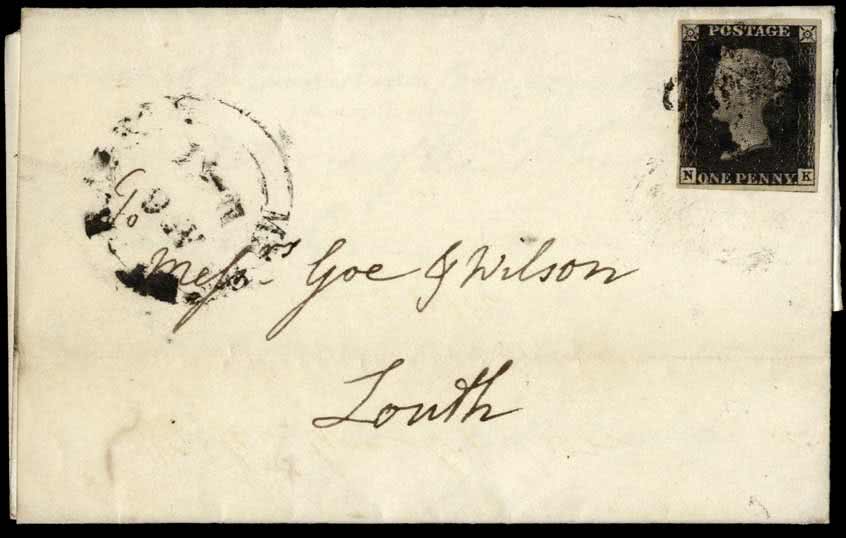 POSTAGE
N ONE PENNY K
To
Messrs Goe & Wilson
Louth